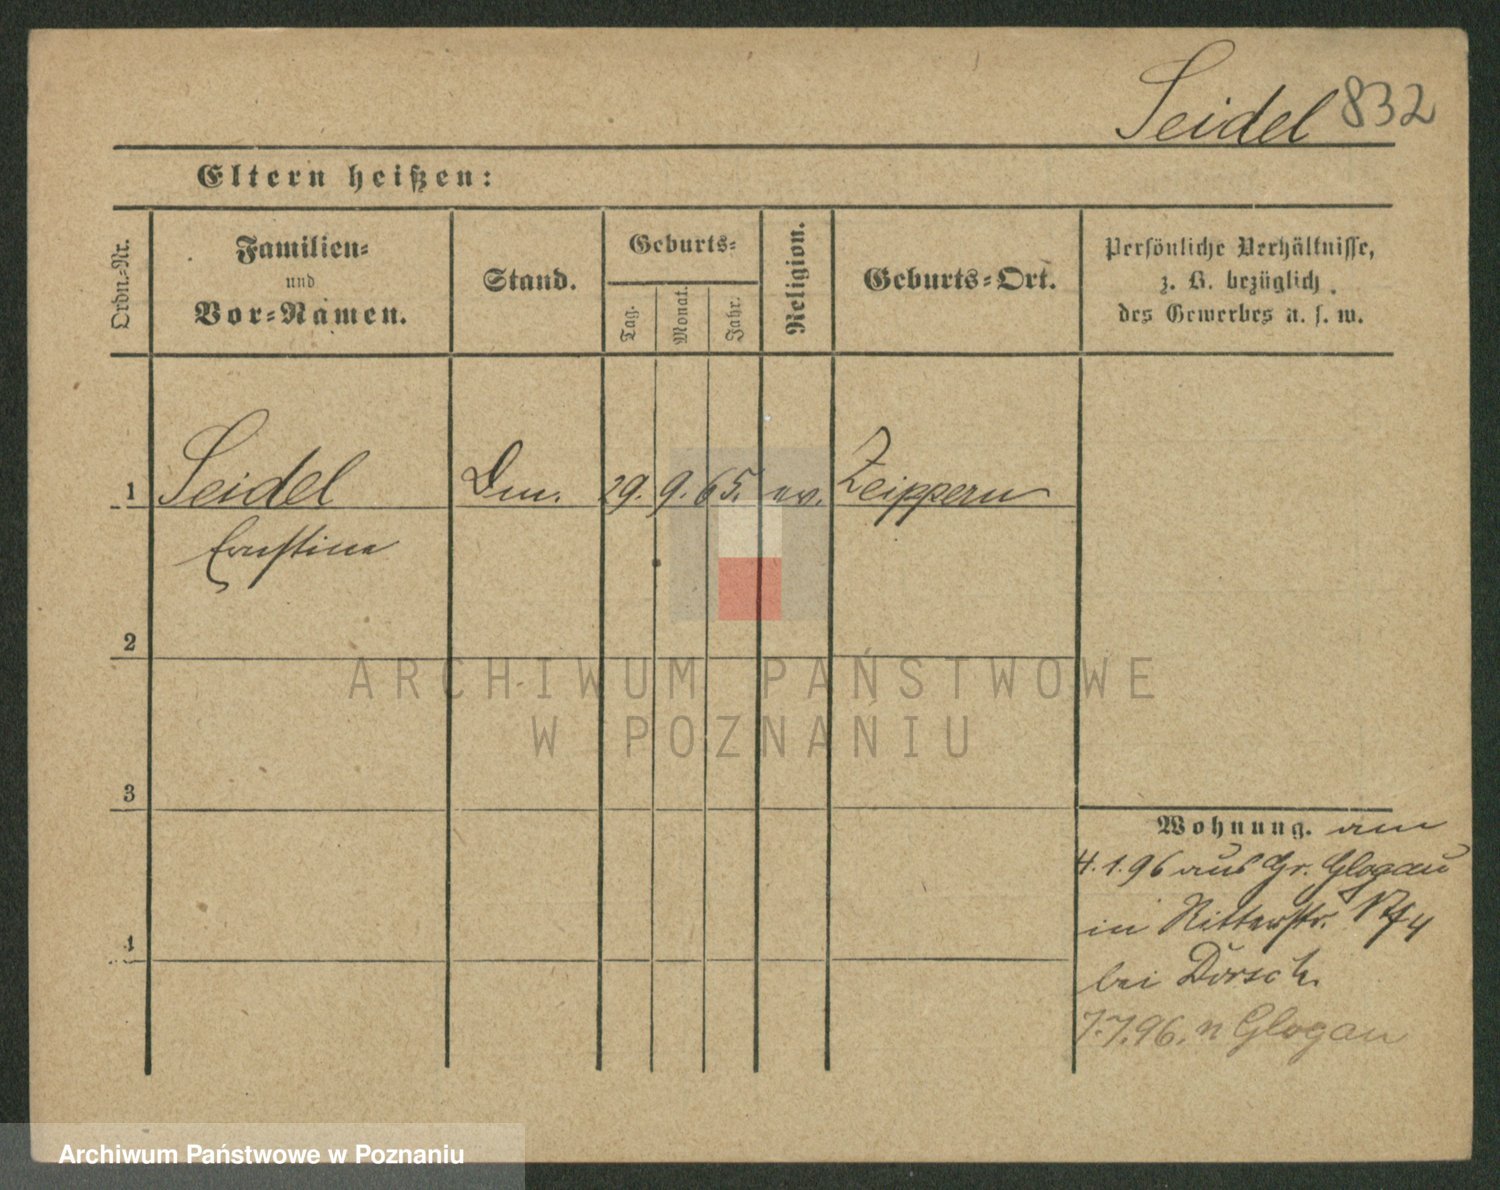 Seidel 832
Eltern heißen:
Ordn.-Nr.
Familien-
und
Vor-Namen.
Stand.
Geburts-
Tag.
Monat.
Jahr.
Religion.
Geburts-Ort.
Persönliche Verhältnisse,
z. B. bezüglich
des Gewerbes u. s. w.
1 Seidel 29. 9. 65. ev. Zeippern
Ernstine
2
3
4
Wohnung. am
4.1.96 aus Gr. Glogau
in Ritterstr.
bei Dorsch.
7.7.96. n Glogau
ARCHIWUM PAŃSTWOWE
W POZNANIU
Archiwum Państwowe w Poznaniu